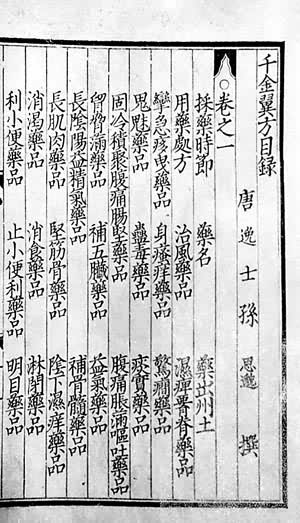 千金翼方目錄
唐 逸 士 孫 思邈 撰
○卷之一
採藥時節 藥名 藥出州土
用藥処方 治風藥品 濕痺脊藥品
攣急痿曳藥品 身瘙痒藥品 驚癇藥品
鬼魅藥品 蠱毒藥品 痰實藥品
固冷積聚腹痛腸堅藥品 腹痛脹滿嘔吐藥品
胷脅滿藥品 補五臟藥品 益氣藥品
長陰陽益精氣藥品 補骨髓藥品
長肌肉藥品 堅筋骨藥品 陰下濕痒藥品
消渴藥品 消食藥品 淋閉藥品
利小便藥品 止小便利藥品 明目藥品